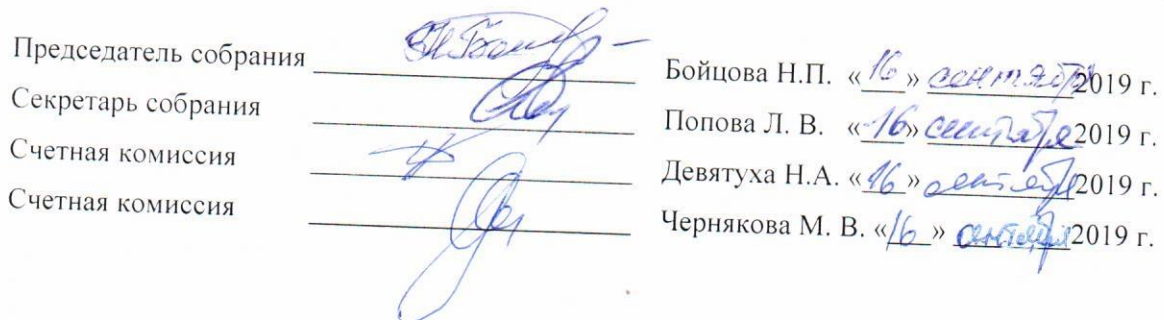 Председатель собрания Бойцова Н.П. «16» сентября 2019 г.
Секретарь собрания Попова Л. В. «16» сентября 2019 г.
Счетная комиссия Девятуха Н.А. «16» сентября 2019 г.
Счетная комиссия Чернякова М. В. «16» сентября 2019 г.